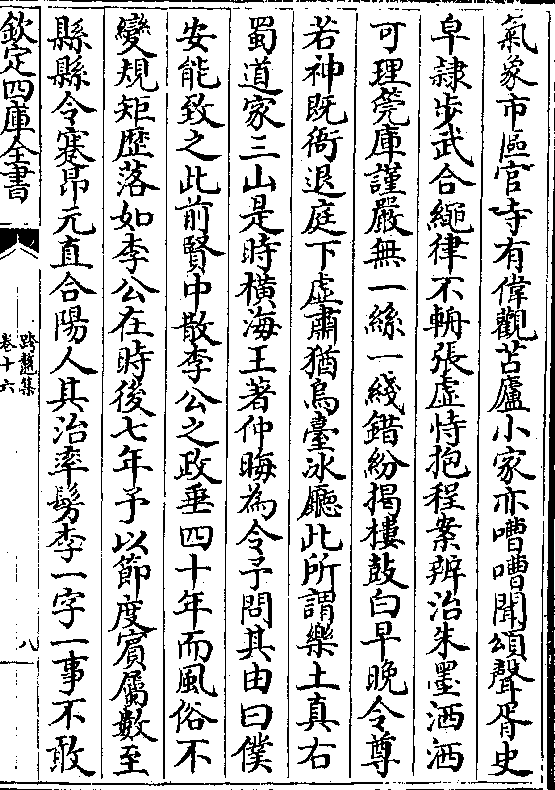 氣象市區官寺有偉觀苫廬小家亦嘈嘈聞頌聲胥史
皁隷步武合繩律不輈張虛恃抱程案辨治朱墨洒洒
可理筦庫謹嚴無一絲一綫錯紛揭樓鼓白早晚令尊
若神既衙退庭下虛肅猶烏臺冰廳此所謂樂土真右
蜀道家三山是時橫海王著仲晦為令予問其由曰僕
安能致之此前賢中散李公之政垂四十年而風俗不
變規矩歷落如李公在時後七年予以節度賓屬數至
縣縣令蹇昂元直合陽人其治率髣李一字一事不敢
欽定四庫全書
跨鼇集
卷十六
八